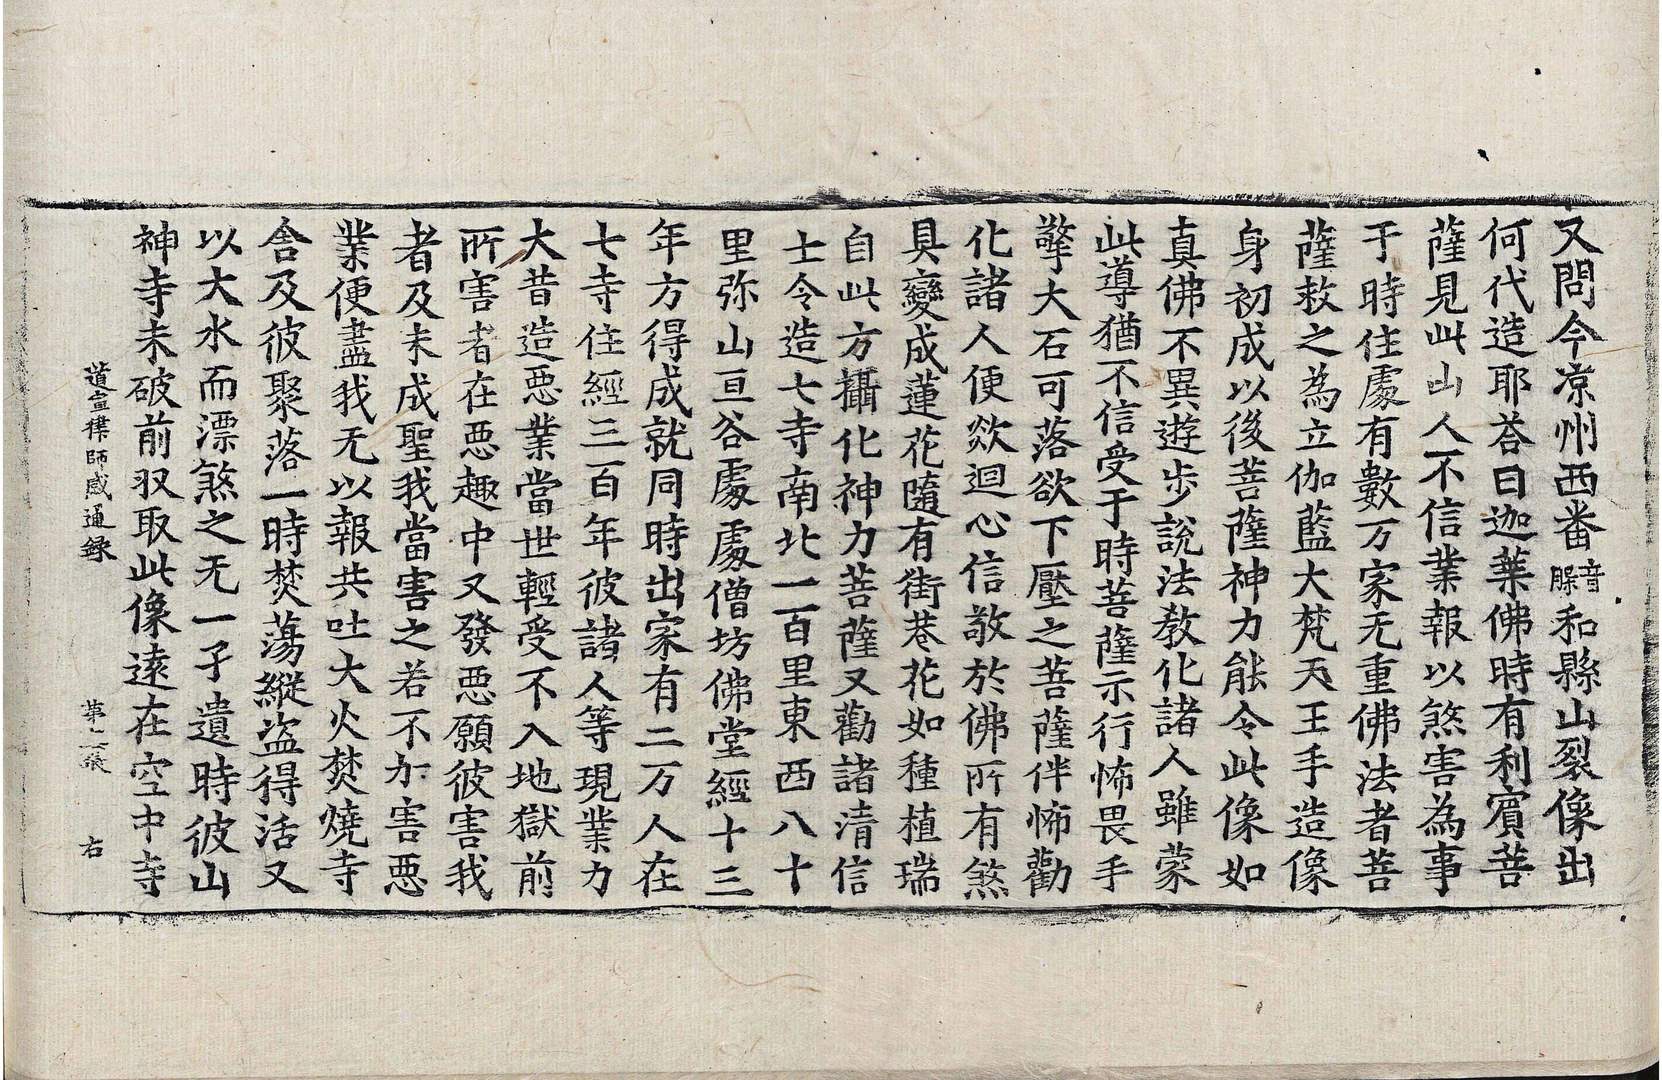 又問今凉州西番音脵和縣山裂像出
何代造耶荅曰迦葉佛時有利賓菩
薩見此山人不信業報以煞害為事
于時住處有數万家无重佛法者菩
薩救之為立伽藍大梵天王手造像
身初成以後菩薩神力能令此像如
真佛不異遊步說法教化諸人雖蒙
此導猶不信受于時菩薩示行怖畏手
擎大石可落欲下壓之菩薩伴怖勸
化諸人便欻迴心信敬於佛所有煞
具變成蓮花隨有街巷花如種植瑞
自此方攝化神力菩薩又勸諸清信
士令造七寺南北一百里東西八十
里弥山亘谷處處僧坊佛堂經十三
年方得成就同時出家有二万人在
七寺住經三百年彼諸人等現業力
大昔造惡業當世輕受不入地獄前
所害者在惡趣中又發惡願彼害我
者及未成聖我當害之若不加害惡
業便盡我无以報共吐大火焚燒寺
舍及彼聚落一時焚蕩縱盜得活又
以大水而漂煞之无一孑遺時彼山
神寺未破前収取此像遠在空中寺
道宣律師感通録 第二張 右